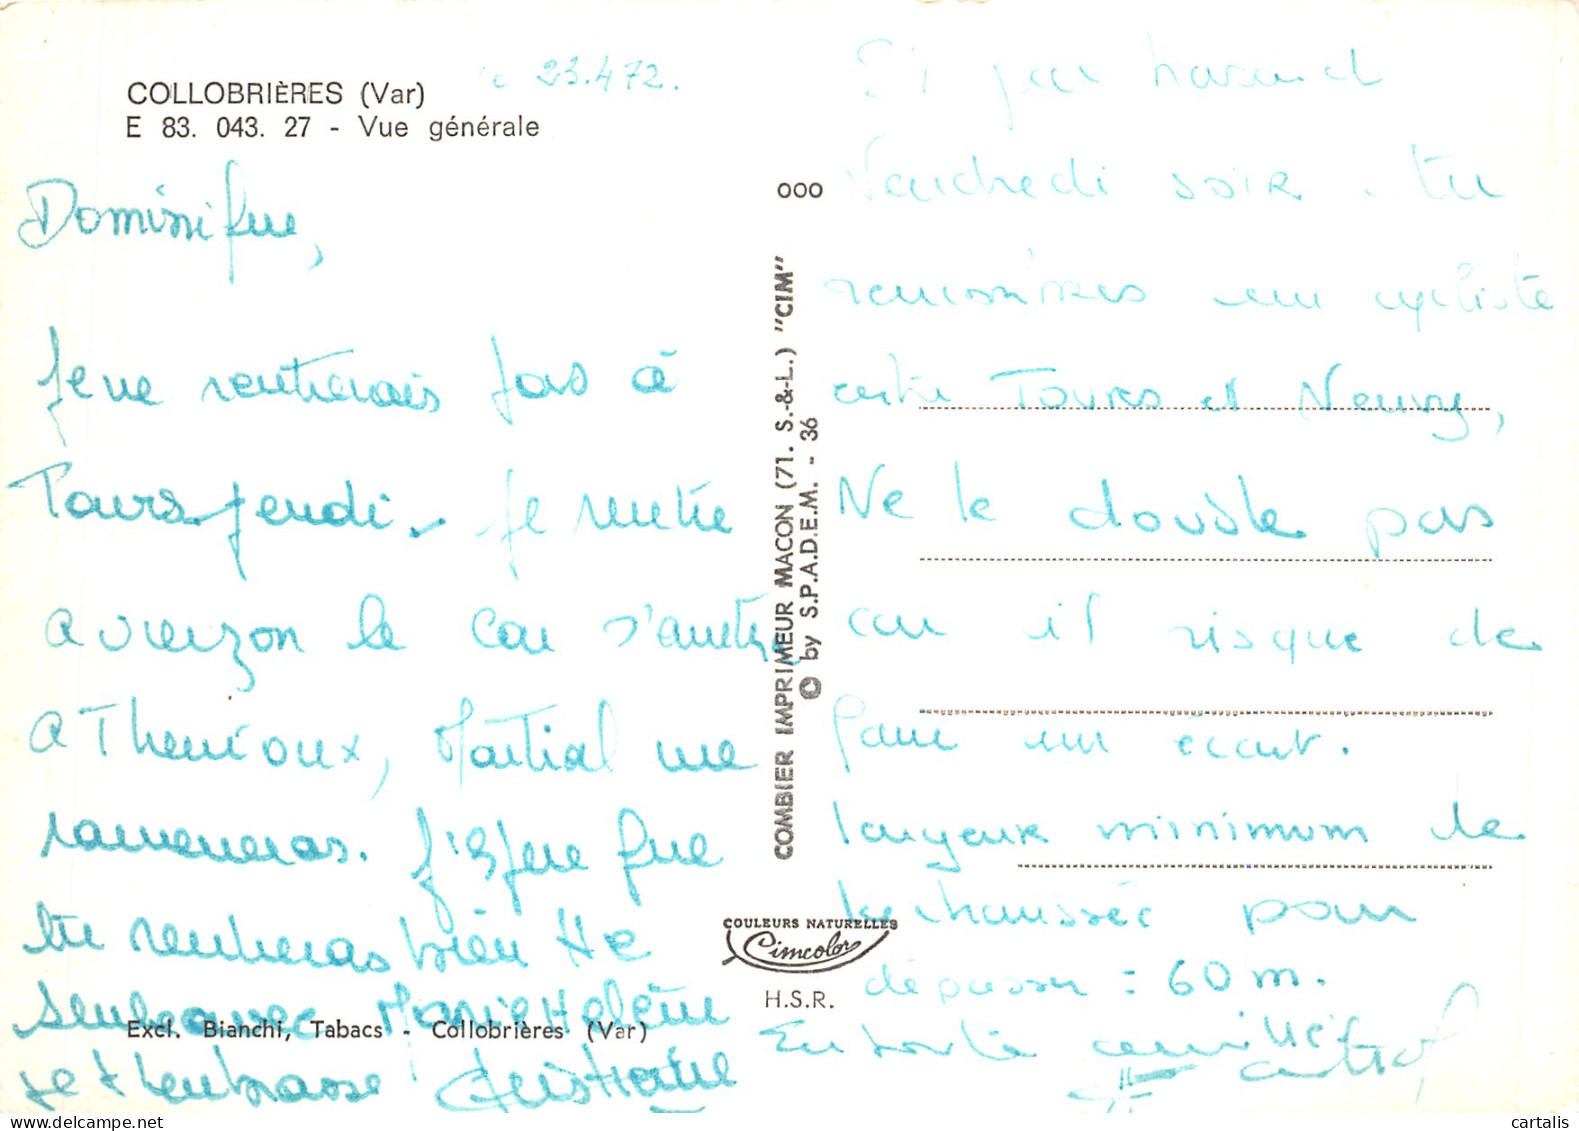 COLLOBRIÈRES (Var)
E 83. 043. 27 - Vue générale
le 23.4 72.
Dominique,
Je ne rentrerais pas à
Tours jeudi. Je rentre
a vierzon le car s'arrête
a Thenioux, Martial me
rameneras. J'espère que
tu rentreras bien
seul avec Marie Helène
je t'embrasse Christiane
Excl. Bianchi, Tabacs - Collobrières (Var)
OOO
COMBIER IMPRIMEUR MACON (71. S.-&-L.) "CIM"
© by S.P.A.D.E.M. - 36
COULEURS NATURELLES
Cimcolor
H.S.R.
Si par hasard
Vendredi soir tu
un cycliste
entre Tours et Neuvy,
Ne le double pas
car il risque de
faire un écart.
largeur minimum de
la chaussée pour
dépasser : 60 m.
En toute